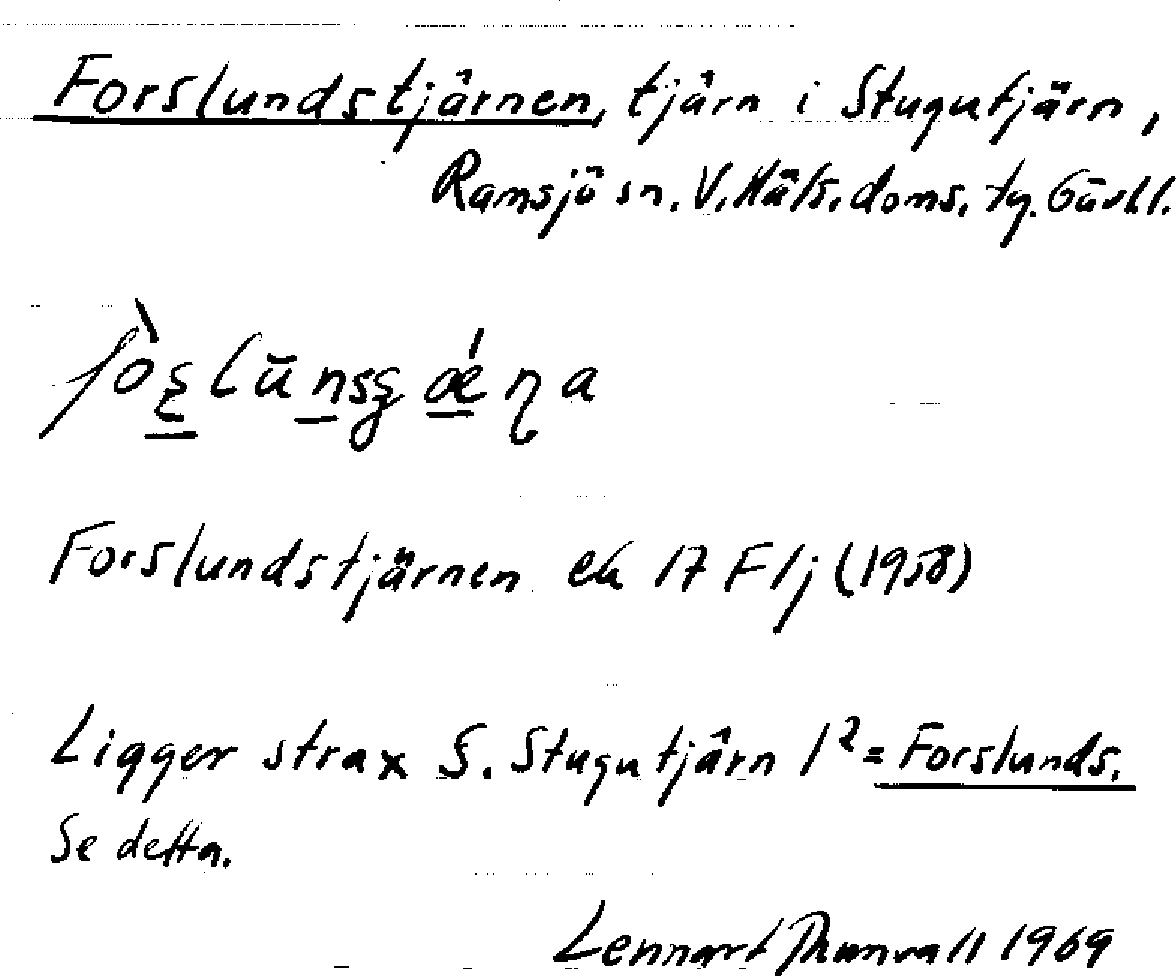 Forslundstjärnen, tjärn i Stugutjärn,
Ramsjö sn. V. Häls. doms. tg. Gävl l.
Forslundstjärnen ek 17 F 1j (1958)
Ligger strax S. Stugutjärn 1² = Forslunds.
Se detta.
Lennart Thunvall 1969